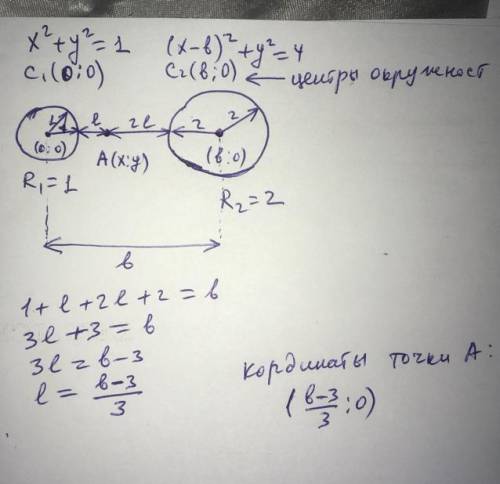 x² + y² = 1 (x-в)² + y² = 4
C₁(0;0) C₂(в;0) ← центры окружност
1 l 2l 2 2
(0;0) A(x;y) (в;0)
R₁ = 1 R₂ = 2
в
1 + l + 2l + 2 = в
3l + 3 = в
3l = в-3
l = (в-3)/3
кординаты точки A:
((в-3)/3 ; 0)